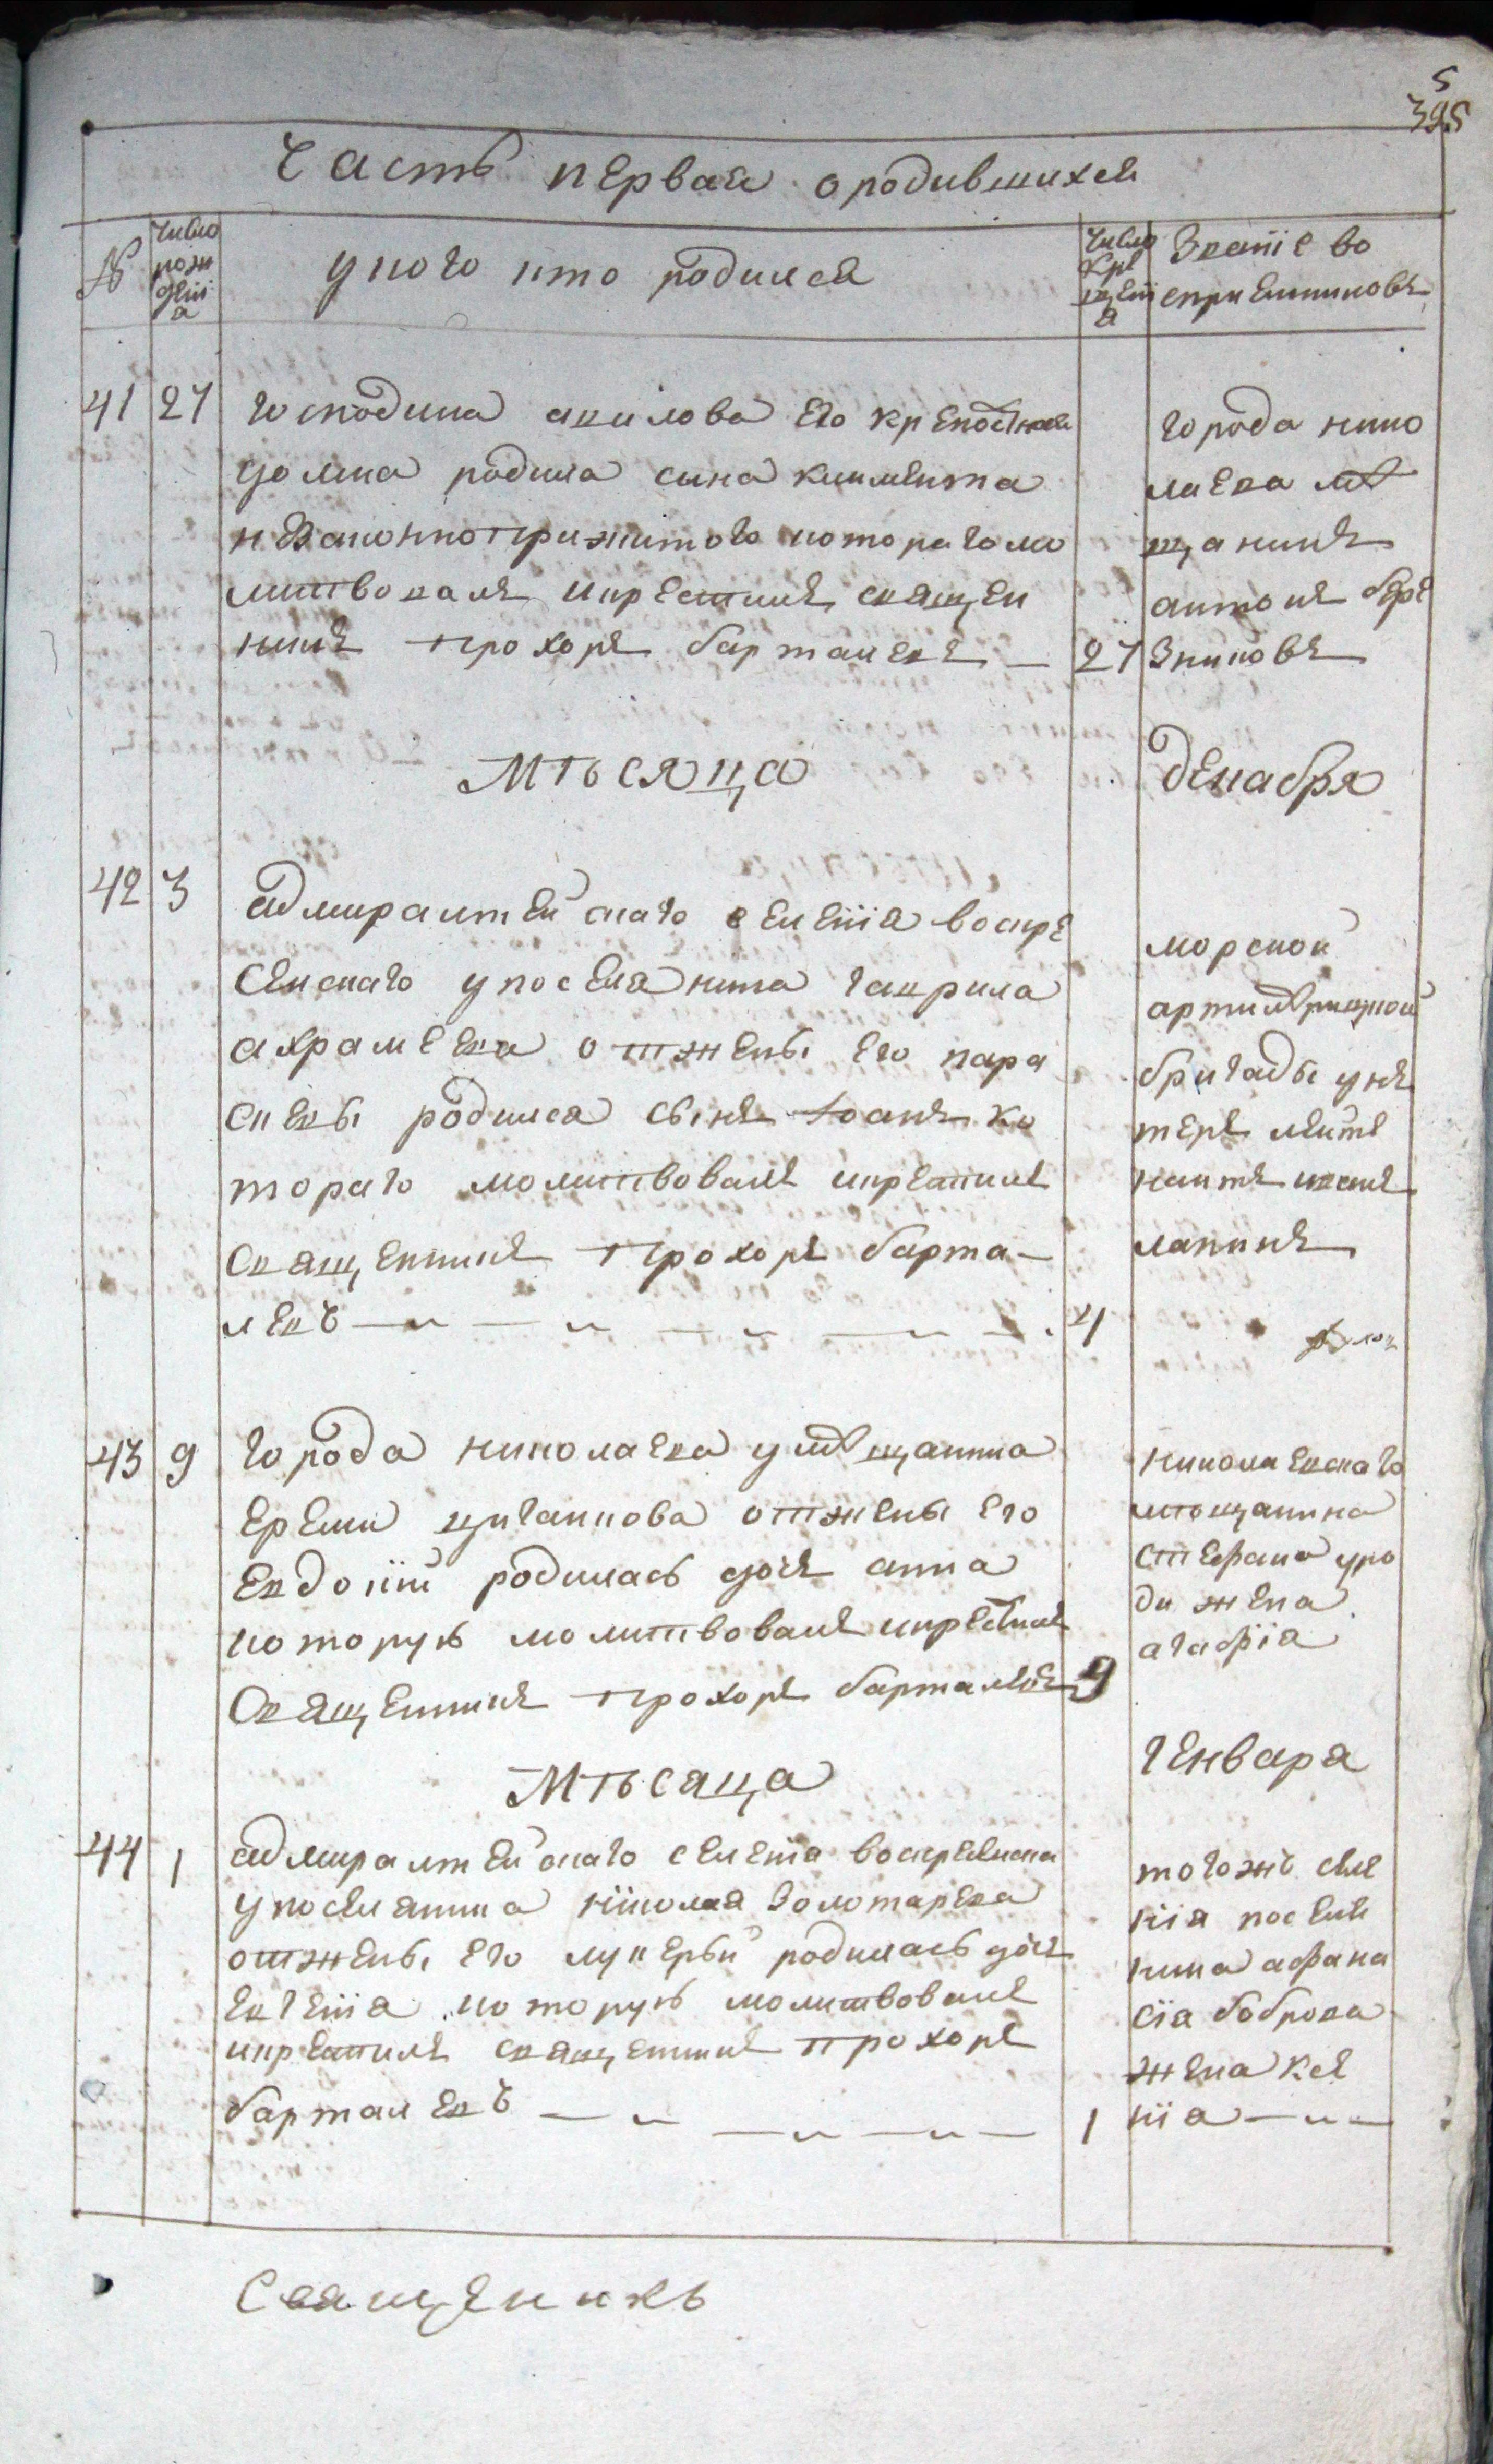 5
395
Часть первая о родившихся
№
число
рож
деніі
а
у кого кто родился
число
кре
щені
я
Званіе во
спріемниковъ
41 27 господина акилова его крепостная
домна родила сына климента
незаконноприжитого которагомо
литвовалъ икрестилъ священ
никъ прохоръ барталевъ — 27
города нико
лаева мѣ
щанинъ
антонъ бере
зниковъ
Мѣсяца декабря
42 3 адмиралтейскаго селенія воскре
сенскаго упоселянина гаврила
ахрамеева отжены его пара
скевы родился сынъ Іоанъ ко
тораго молитвовалъ икрестилъ
священникъ прохоръ барта-
левъ — 4
морской
артилѣрицкой
бригады унъ
теръ лейте
нантъ иванъ
лапинъ
43 9 города николаева умѣщанина
еремии циганкова отжены его
евдокіи родилась дочь анна
которую молитвовалъ икрестилъ
священникъ прохоръ барталевъ 9
николаевскаго
мѣщанина
стефана уро
ди жена
агафія
Мѣсяца генваря
44 1 адмиралтейскаго селенія воскресенска
упоселянина ніколая Золотарева
отжены его лукерьи родилась дочь
евгенія которую молитвовалъ
икрестилъ священникъ прохоръ
барталевъ — 1
тогожъ селе
нія поселя
нина афана
сія боброва
жена ксе
нія
Священикъ